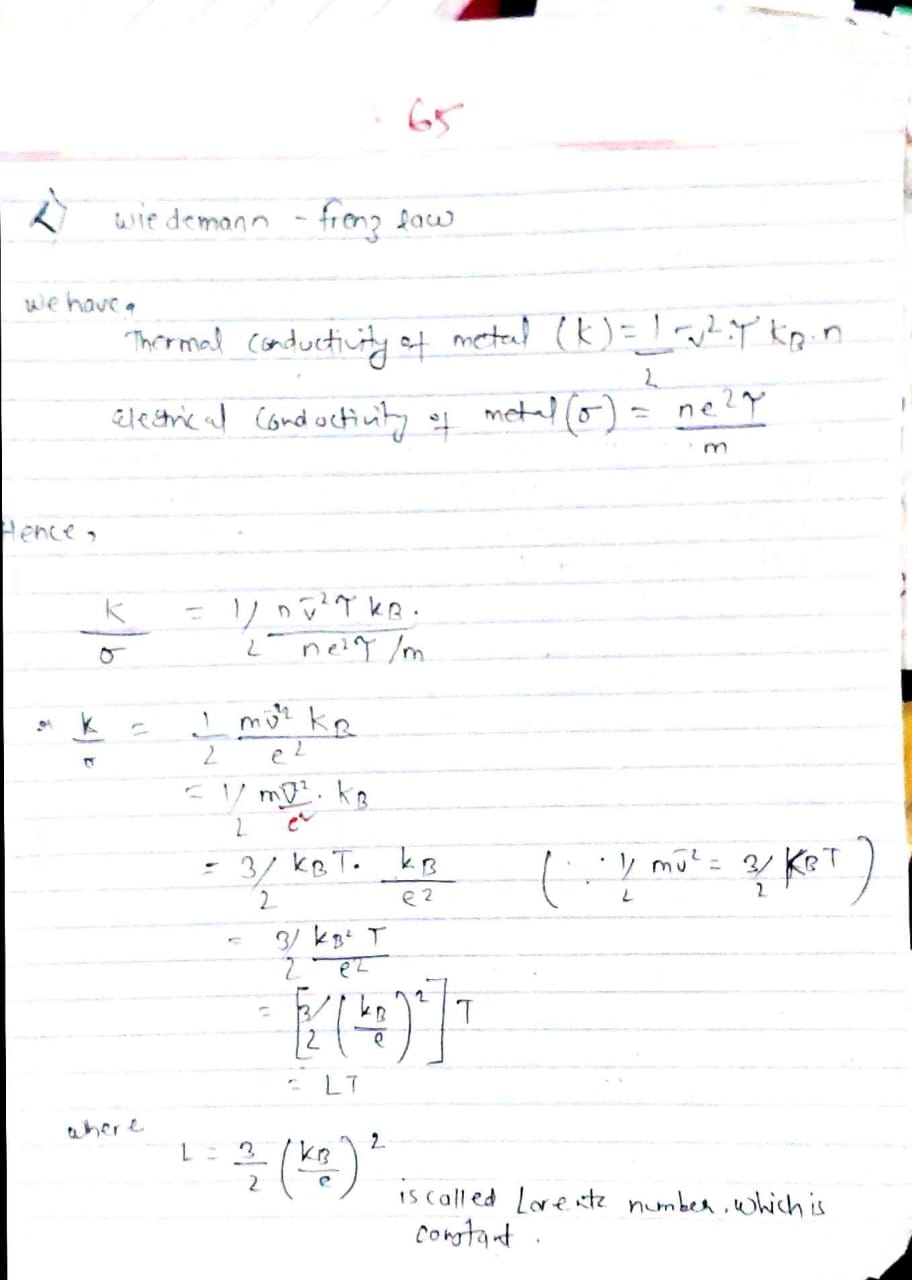 65
2) wiedemann - frenz law
we have,
Thermal conductivity of metal (K) = 1/2 v̄² τ kB.n
electrical conductivity of metal (σ) = ne²τ/m
Hence,
K/σ = 1/2 n v̄² τ kB. / ne²τ/m
or K/σ = 1/2 m v̄² kB / e²
= 1/2 m v̄²/e² . kB
= 3/2 kBT. kB/e² (∵ 1/2 m v̄² = 3/2 KBT)
= 3/2 kB² T / e²
= [3/2 (kB/e)²] T
= LT
where
L = 3/2 (kB/e)²
is called Lorentz number. which is
constant.